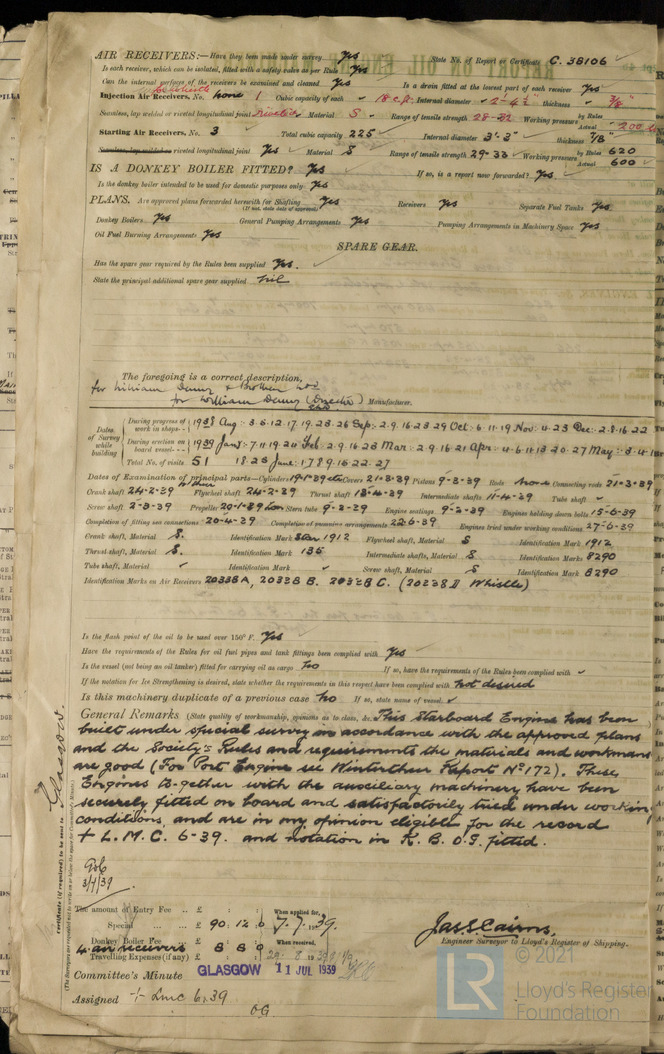 AIR RECEIVERS:—Have they been made under survey Yes State No. of Report or Certificate C. 38106
Is each receiver, which can be isolated, fitted with a safety valve as per Rule Yes
Can the internal surfaces of the receivers be examined and cleaned Yes Is a drain fitted at the lowest part of each receiver Yes
Injection Air Receivers, No. none 1 Cubic capacity of each 18 c.f. Internal diameter 2'-4½" thickness 3/8"
Seamless, lap welded or riveted longitudinal joint riveted Material S Range of tensile strength 28-32 Working pressure by Rules Actual 200
Starting Air Receivers, No. 3 Total cubic capacity 225 Internal diameter 3'-3" thickness 7/8"
Seamless, lap welded or riveted longitudinal joint Yes Material S Range of tensile strength 29-33 Working pressure by Rules 620 Actual 600
IS A DONKEY BOILER FITTED? Yes If so, is a report now forwarded? Yes
Is the donkey boiler intended to be used for domestic purposes only Yes
PLANS. Are approved plans forwarded herewith for Shafting Yes Receivers Yes Separate Fuel Tanks Yes
(If not, state date of approval)
Donkey Boilers Yes General Pumping Arrangements Yes Pumping Arrangements in Machinery Space Yes
Oil Fuel Burning Arrangements Yes
SPARE GEAR.
Has the spare gear required by the Rules been supplied Yes.
State the principal additional spare gear supplied Nil
The foregoing is a correct description,
for William Denny & Brothers Ltd
for William Denny (Director) Manufacturer.
Dates of Survey while building
During progress of work in shops-- 1938 Aug: 3.5.12.17.19.23.26 Sep: 2.9.16.23.29 Oct: 6.11.19 Nov: 4.23 Dec: 2.8.16.22
During erection on board vessel--- 1939 Jan: 7.11.19.24 Feb: 2.9.16.23 Mar: 2.9.16.21 Apr: 4.6.11.13.20.27 May: 3.4.
Total No. of visits 51 18.25 June: 1.7.8.9.16.22.27
Dates of Examination of principal parts—Cylinders 19-1-39 etc Covers 21-3-39 Pistons 9-3-39 Rods None Connecting rods 21-3-39
Crank shaft 24-2-39 Flywheel shaft 24-2-39 Thrust shaft 13-4-39 Intermediate shafts 11-4-39 Tube shaft
Screw shaft 2-3-39 Propeller 20-1-39 Stern tube 9-3-39 Engine seatings 9-3-39 Engines holding down bolts 15-6-39
Completion of fitting sea connections 20-4-39 Completion of pumping arrangements 22-6-39 Engines tried under working conditions 27-6-39
Crank shaft, Material S. Identification Mark Star 1912 Flywheel shaft, Material S Identification Mark 1912
Thrust shaft, Material S. Identification Mark 135 Intermediate shafts, Material S Identification Marks 8290
Tube shaft, Material Identification Mark Screw shaft, Material S Identification Mark 8290
Identification Marks on Air Receivers 2033B A, 2032B B. 2032B C. (2023B D Whistle)
Is the flash point of the oil to be used over 150° F. Yes
Have the requirements of the Rules for oil fuel pipes and tank fittings been complied with Yes
Is the vessel (not being an oil tanker) fitted for carrying oil as cargo No If so, have the requirements of the Rules been complied with
If the notation for Ice Strengthening is desired, state whether the requirements in this respect have been complied with Not desired
Is this machinery duplicate of a previous case No If so, state name of vessel.
General Remarks (State quality of workmanship, opinions as to class, &c. This Starboard Engine has been
built under special survey in accordance with the approved plans
and the Society's Rules and requirements the materials and workman
are good (For Port Engine see Winterthur Report No 172). These
Engines together with the auxiliary machinery have been
securely fitted on board and satisfactorily tried under working
conditions, and are in my opinion eligible for the record
+ L.M.C. 6-39. and notation in R.B. O.G. fitted.
3/7/39
Glasgow
Certificate (if required) to be sent to
(The Surveyors are requested not to write on or below the space for Committee's Minute.)
The amount of Entry Fee .. £ : : When applied for,
Special .. £ 90. 12. 0 7.7.1939.
Donkey Boiler Fee
4 air receivers £ 8 8 0 When received,
Travelling Expenses (if any) £ : : 29.8.1939
Jas. S. Cairns.
Engineer Surveyor to Lloyd's Register of Shipping.
Committee's Minute GLASGOW 11 JUL 1939
Assigned + Lmc 6.39
O.G.
© 2021
LR Lloyd's Register
Foundation